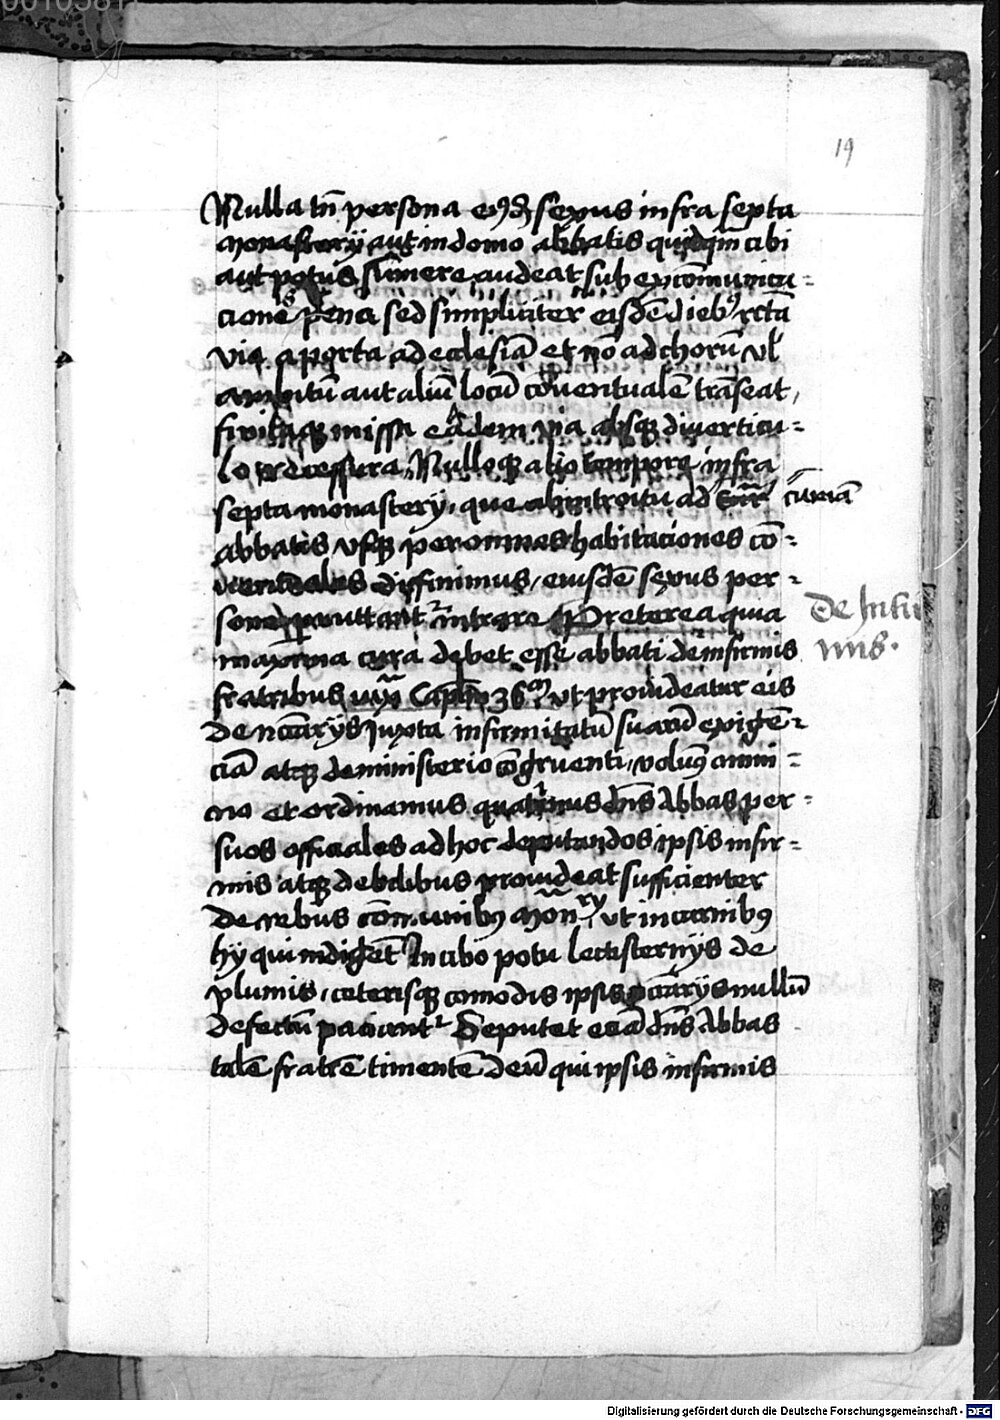 19
Nulla tñ persona eiꝰdꝫ sexus infra septa
monastery aut in domo abbatis quidqm̃ cibi
aut potus sumere audeat sub excõmunica=
cionis pena sed simpliciter eisdẽ diebꝰ rctã
via a porta ad ecclesiã et nõ ad chorũ vl
ambitũ aut aliũ locũ cõuentualẽ trãseat,
finitaqꝫ missa eadem via absqꝫ diuerticu=
lo regressura, Nulloqꝫ alio tempore infra
septa monastery, que ab introitu ad curiã
abbatis vsqꝫ per omnes habitaciones cõ=
uentuales diffinimus, eiusdẽ sexus per=
sone permittantr intrare Preterea quia
De Infir
mis.
maxima cura debet esse abbati de infirmis
fratribus iuxͣ Capᵐ 36ᵐ vt prouideatur eis
de ncc̃arijs Juxta infirmitatũ suarũ exigẽ=
ciã atqꝫ de ministerio cõgruenti, volumꝰ omni=
no et ordinamus quatinus dñs Abbas per=
suos officiales ad hoc deputandos ipsis infir=
mis atqꝫ debilibus prouideat sufficienter
de rebus cõmunibꝰ mon̄ry vt in carnibꝰ
hij qui indigẽt In cibo potu lectisternijs de
plumis, ceterisqꝫ comodis ipsis ncc̃arijs nullũ
defectũ paciantr Deputet eciã dñs Abbas
talẽ fratrẽ timentẽ deũ qui ipsis infirmis
Digitalisierung gefördert durch die Deutsche Forschungsgemeinschaft - DFG